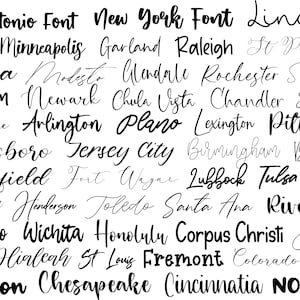 tonio Font New York Font Linc
Minneapolis Garland Raleigh St P
a Modesto Glendale Rochester S
n Newark Chula Vista Chandler
Arlington Plano Lexington Pit
sboro Jersey City Birmingham
field Fort Wayne Lubbock Tulsa
Henderson Toledo Santa Ana Riv
o Wichita Honolulu Corpus Christi
Hialeah St Louis Fremont Colorado
on Chesapeake Cincinnatia NO